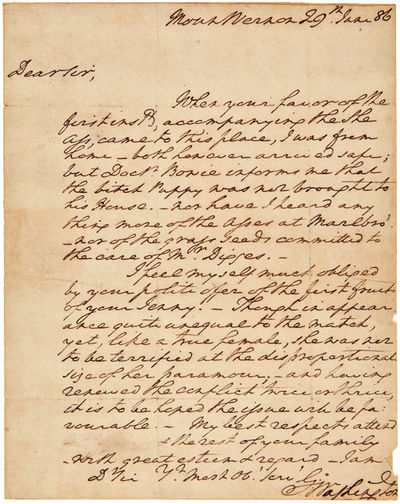 Mount Vernon 29th June 86
Dear Sir,
When your favor of the
first inst., accompanying the She
Ass, came to this place, I was from
home – both however arrived safe;
but Doctr. Bowie informs me that
the bitch Puppy was not brought to
his House. – nor have I heard any
thing more of the Asses at Marlbro'.
– nor of the grass seeds committed to
the care of Mr. Digges. –
I feel myself much obliged
by your polite offer of the first fruit
of your Jenny. – Though in appear
ance quite unequal to the match,
yet, like a true female, she was not
to be terrified at the disproportional
size of her paramour, – and having
renewed the conflict twice or thrice,
it is to be hoped the issue will be fa-
vourable. – My best respects attend
& the rest of your family
– with great esteem & regard – I am
Dr Sir Yr. Most Ob. Serv.
G. Washington